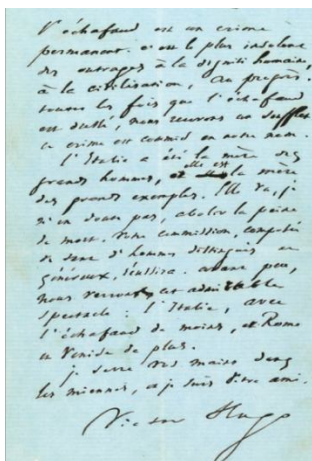 L'échafaud est un crime
permanent. c'est le plus insolent
des outrages à la dignité humaine,
à la civilisation, au progrès.
toutes les fois que l'échafaud
est dressé, nous recevons un soufflet
ce crime est commis en notre nom.
L'Italie a été la mère des
grands hommes, et elle est la mère
des grands exemples. Elle va, je
n'en doute pas, abolir la peine
de mort. votre commission, composée
de tant d'hommes distingués et
généreux, réussira. avant peu,
nous verrons cet admirable
spectacle : l'Italie, avec
l'échafaud de moins, et Rome
et Venise de plus.
je serre vos mains dans
les miennes, et je suis votre ami.
Victor Hugo